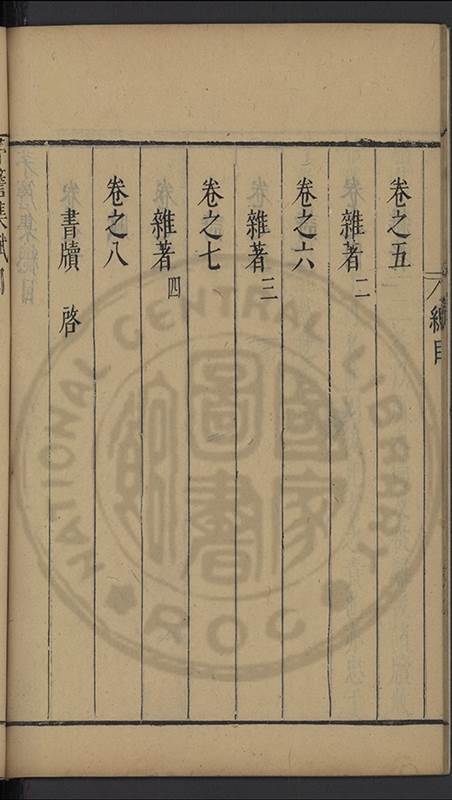 卷之五
雜著二
卷之六
雜著三
卷之七
雜著四
卷之八
書牘 啓
NATIONAL CENTRAL LIBRARY
ROC
國家圖書館